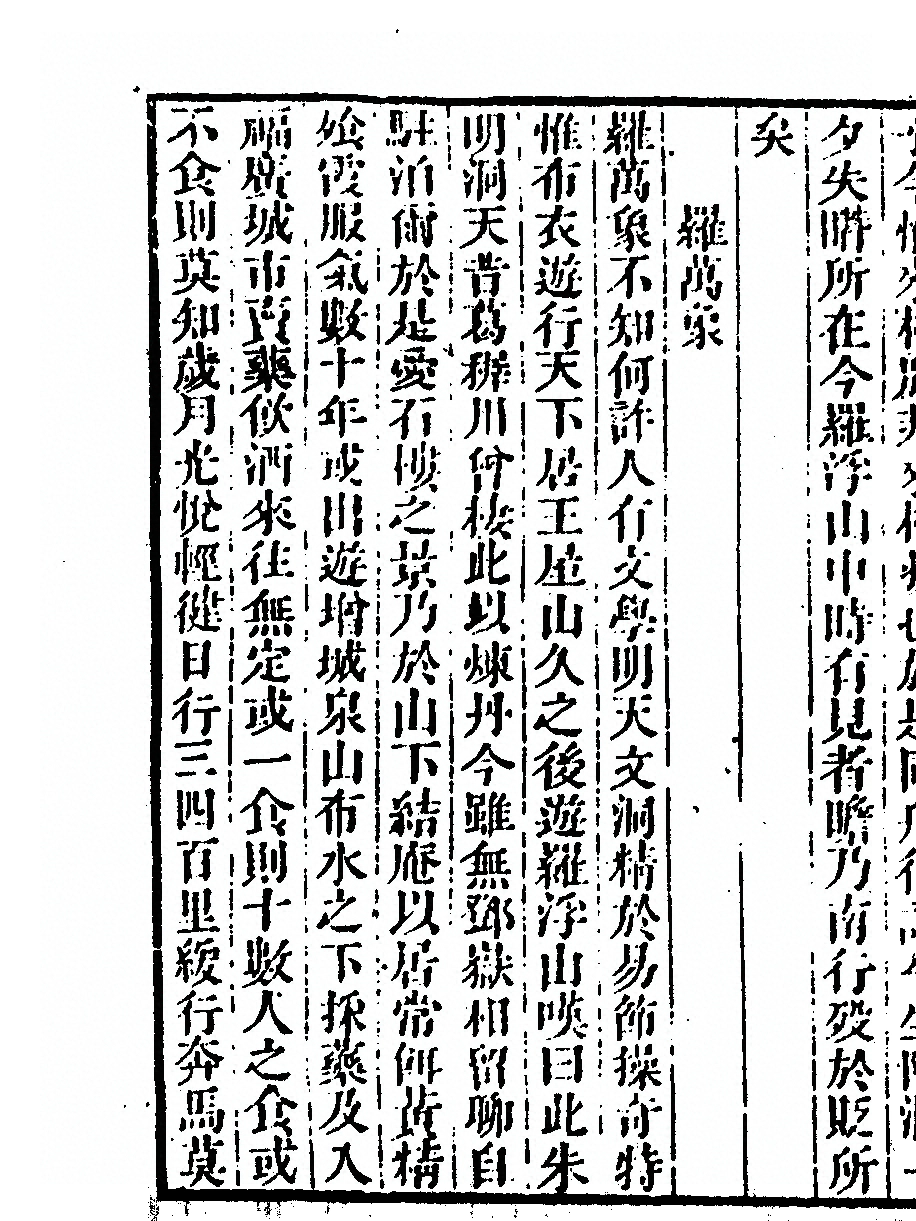 夕失聃所在今羅浮山中時有見者瞻乃南行歿於貶所
矣
羅萬象
羅萬象不知何許人有文學明天文洞精於易節操奇特
惟布衣遊行天下居王屋山久之後遊羅浮山嘆曰此朱
明洞天昔葛稚川曾棲此以煉丹今雖無鄧嶽相留聊自
駐泊爾於是愛石樓之景乃於山下結庵以居常餌黃精
飧霞服氣數十年或出遊增城泉山布水之下採藥及入
福廣城市賣藥飲酒來往無定或一食則十數人之食或
不食則莫知歲月光悅輕健日行三四百里緩行奔馬莫